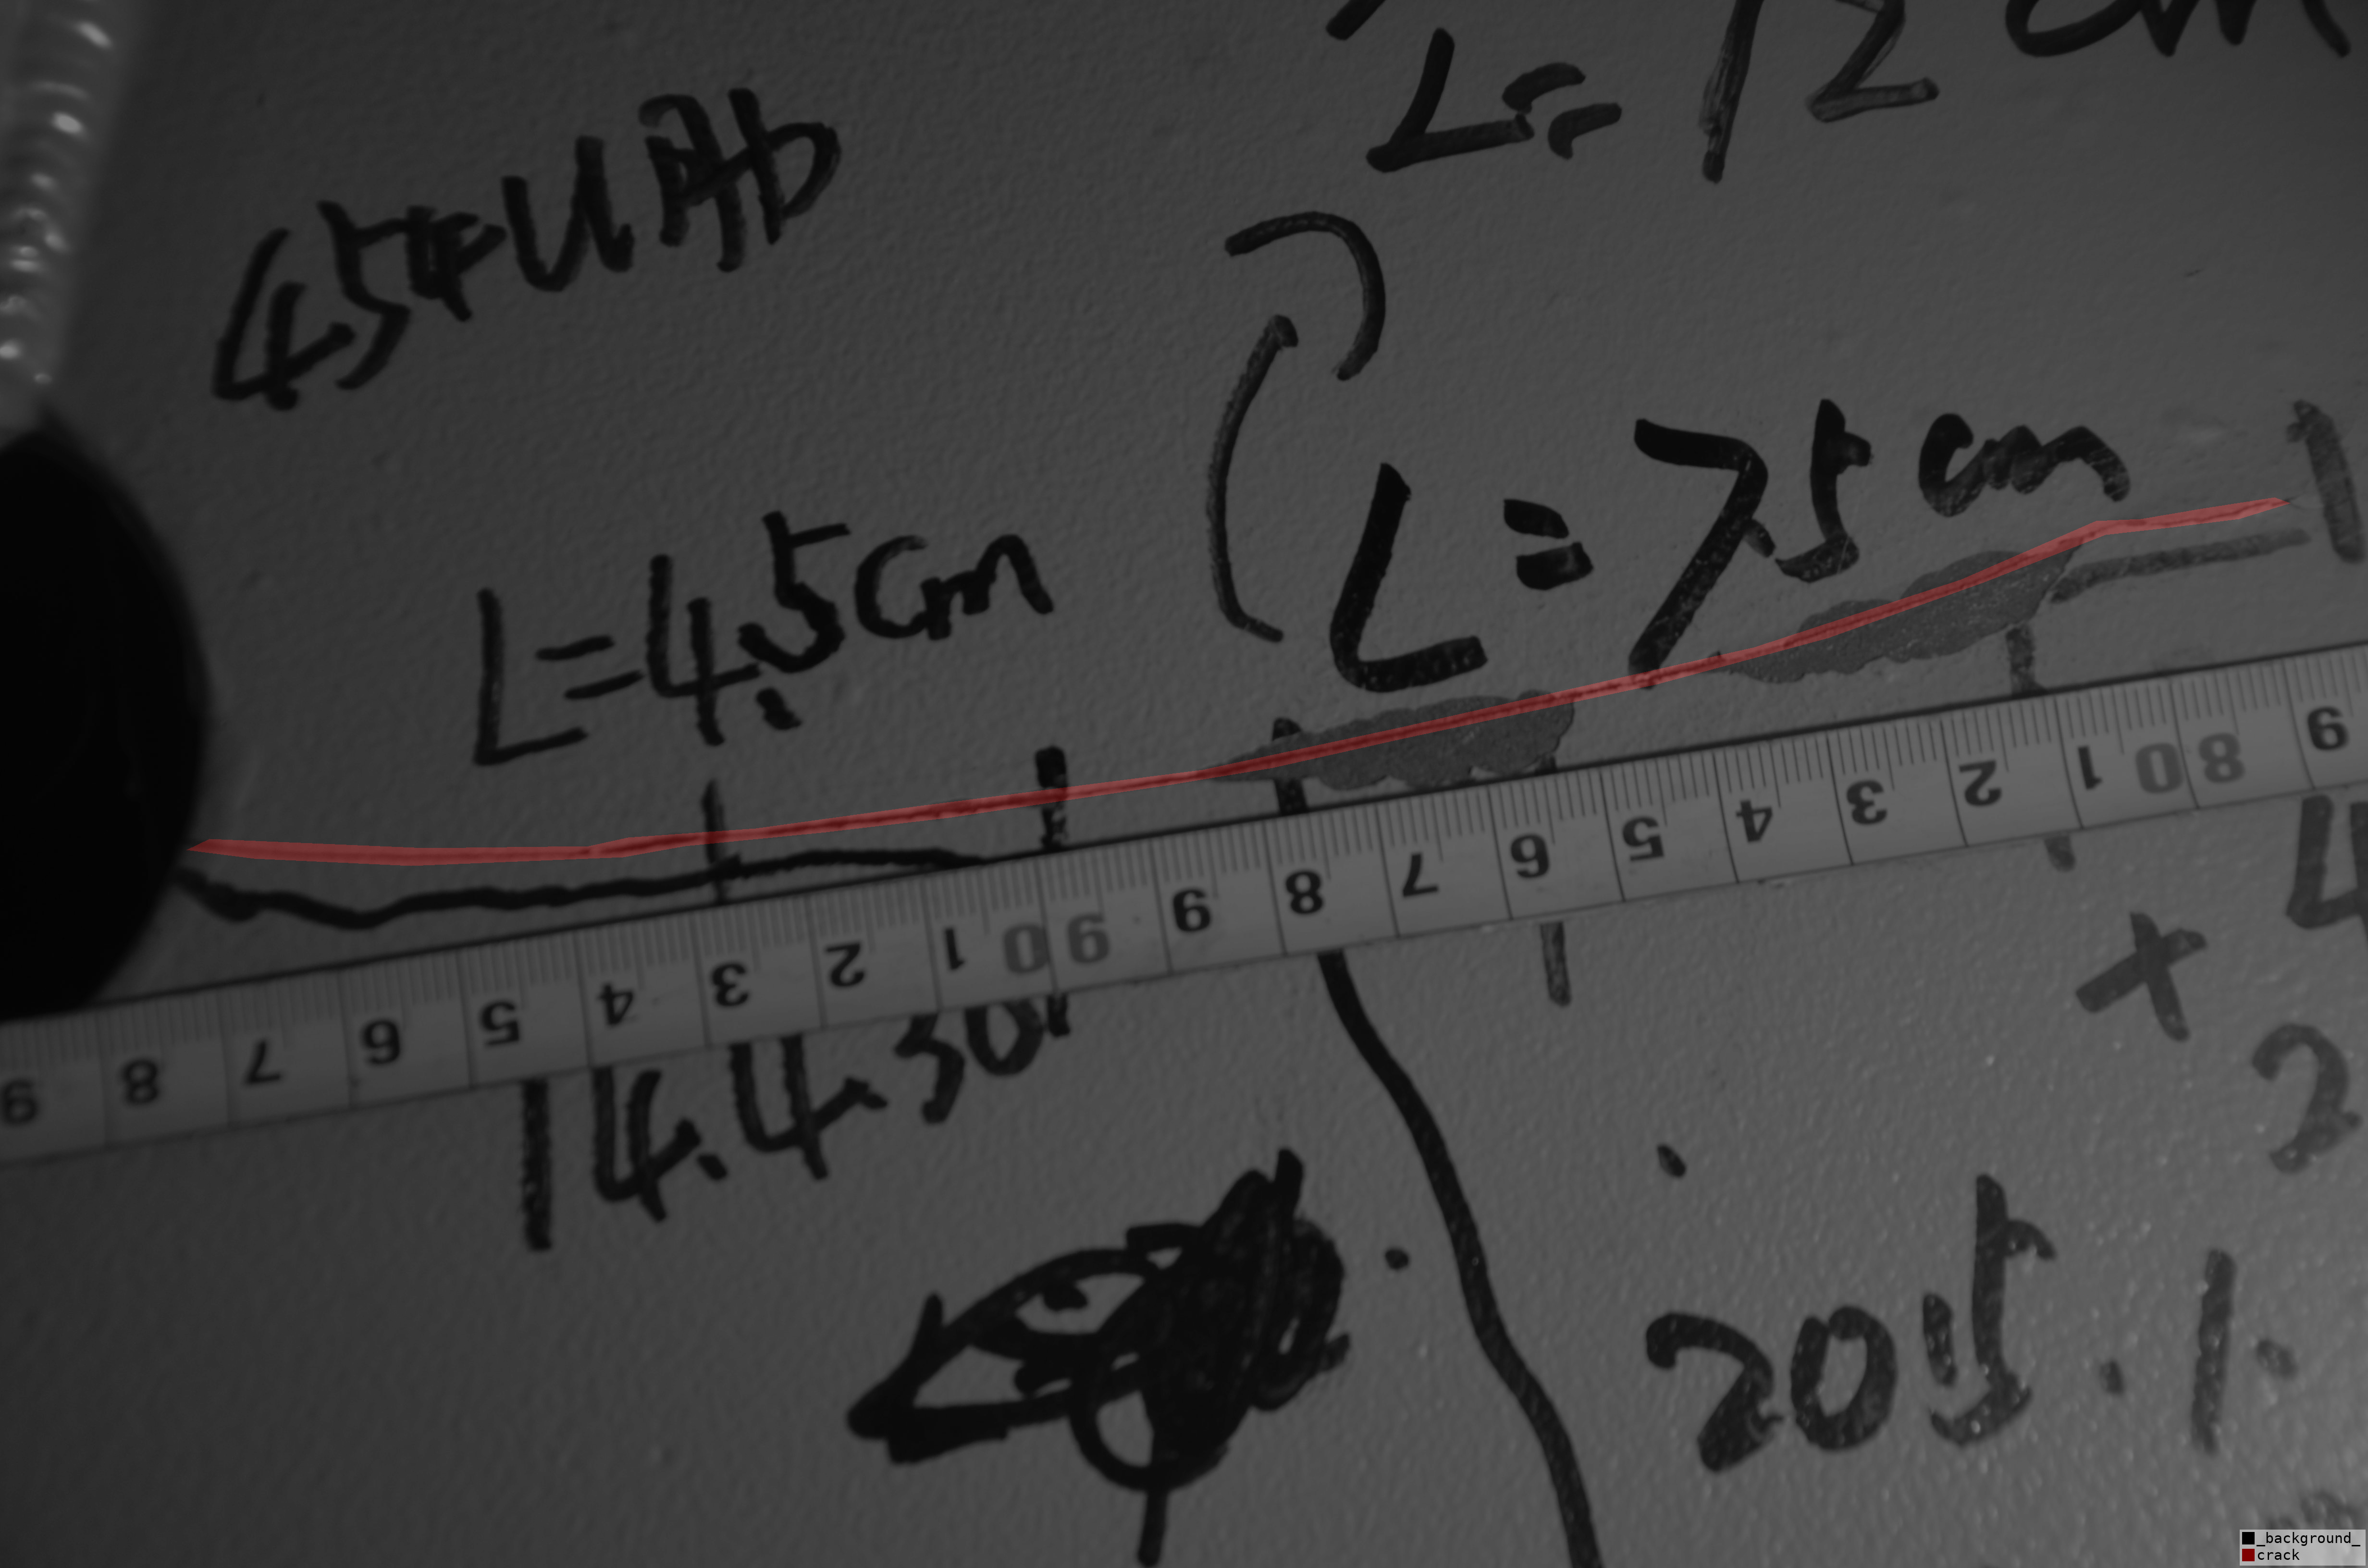 L=12cm
L=4.5cm
L=7.5cm
9 8 7 6 5 4 3 2 1 90 9 8 7 6 5 4 3 2 1 80 9
14.4.30
+ 4
2
2015.1.
_background_
crack